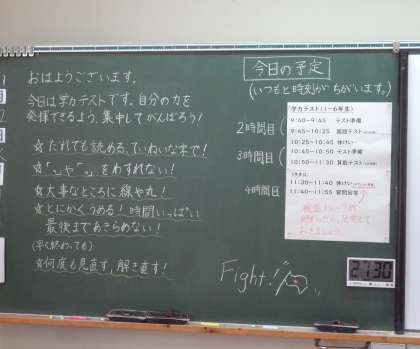 おはようございます。
今日は学力テストです。自分の力を
発揮できるよう、集中してがんばろう!
☆だれでも読める、ていねいな字で!
☆「、」や「。」をわすれない!
☆大事なところに線や丸!
☆とにかくうめる!時間いっぱい
最後まであきらめない!
(早く終わっても)
☆何度も見直す、解き直す!
今日の予定
(いつもと時刻がちがいます。)
2時間目
3時間目
4時間目
学力テスト(1~6年生)
9:40~9:45 テスト準備
9:45~10:25 国語テスト
10:25~10:45 休けい
10:45~10:50 テスト準備
10:50~11:30 算数テスト
11:30~11:40 休けい
11:40~11:55 質問紙
終わったら、
おきましょう。
Fight!